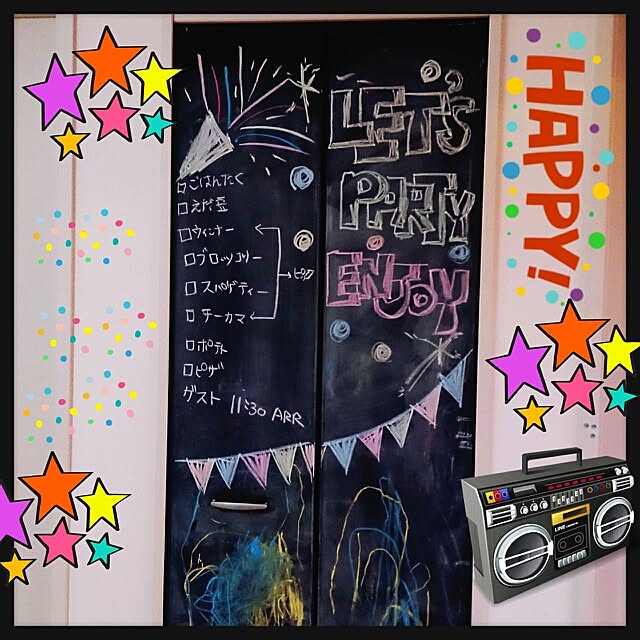 □ごはんたく
□えだ豆
□ウィンナー
□ブロッコリー
□スパゲティー
□チーカマ
ピック
□ポテト
□ピザ
ゲスト 11:30 ARR
LET'S
PARTY
ENJOY
HAPPY!
LINE